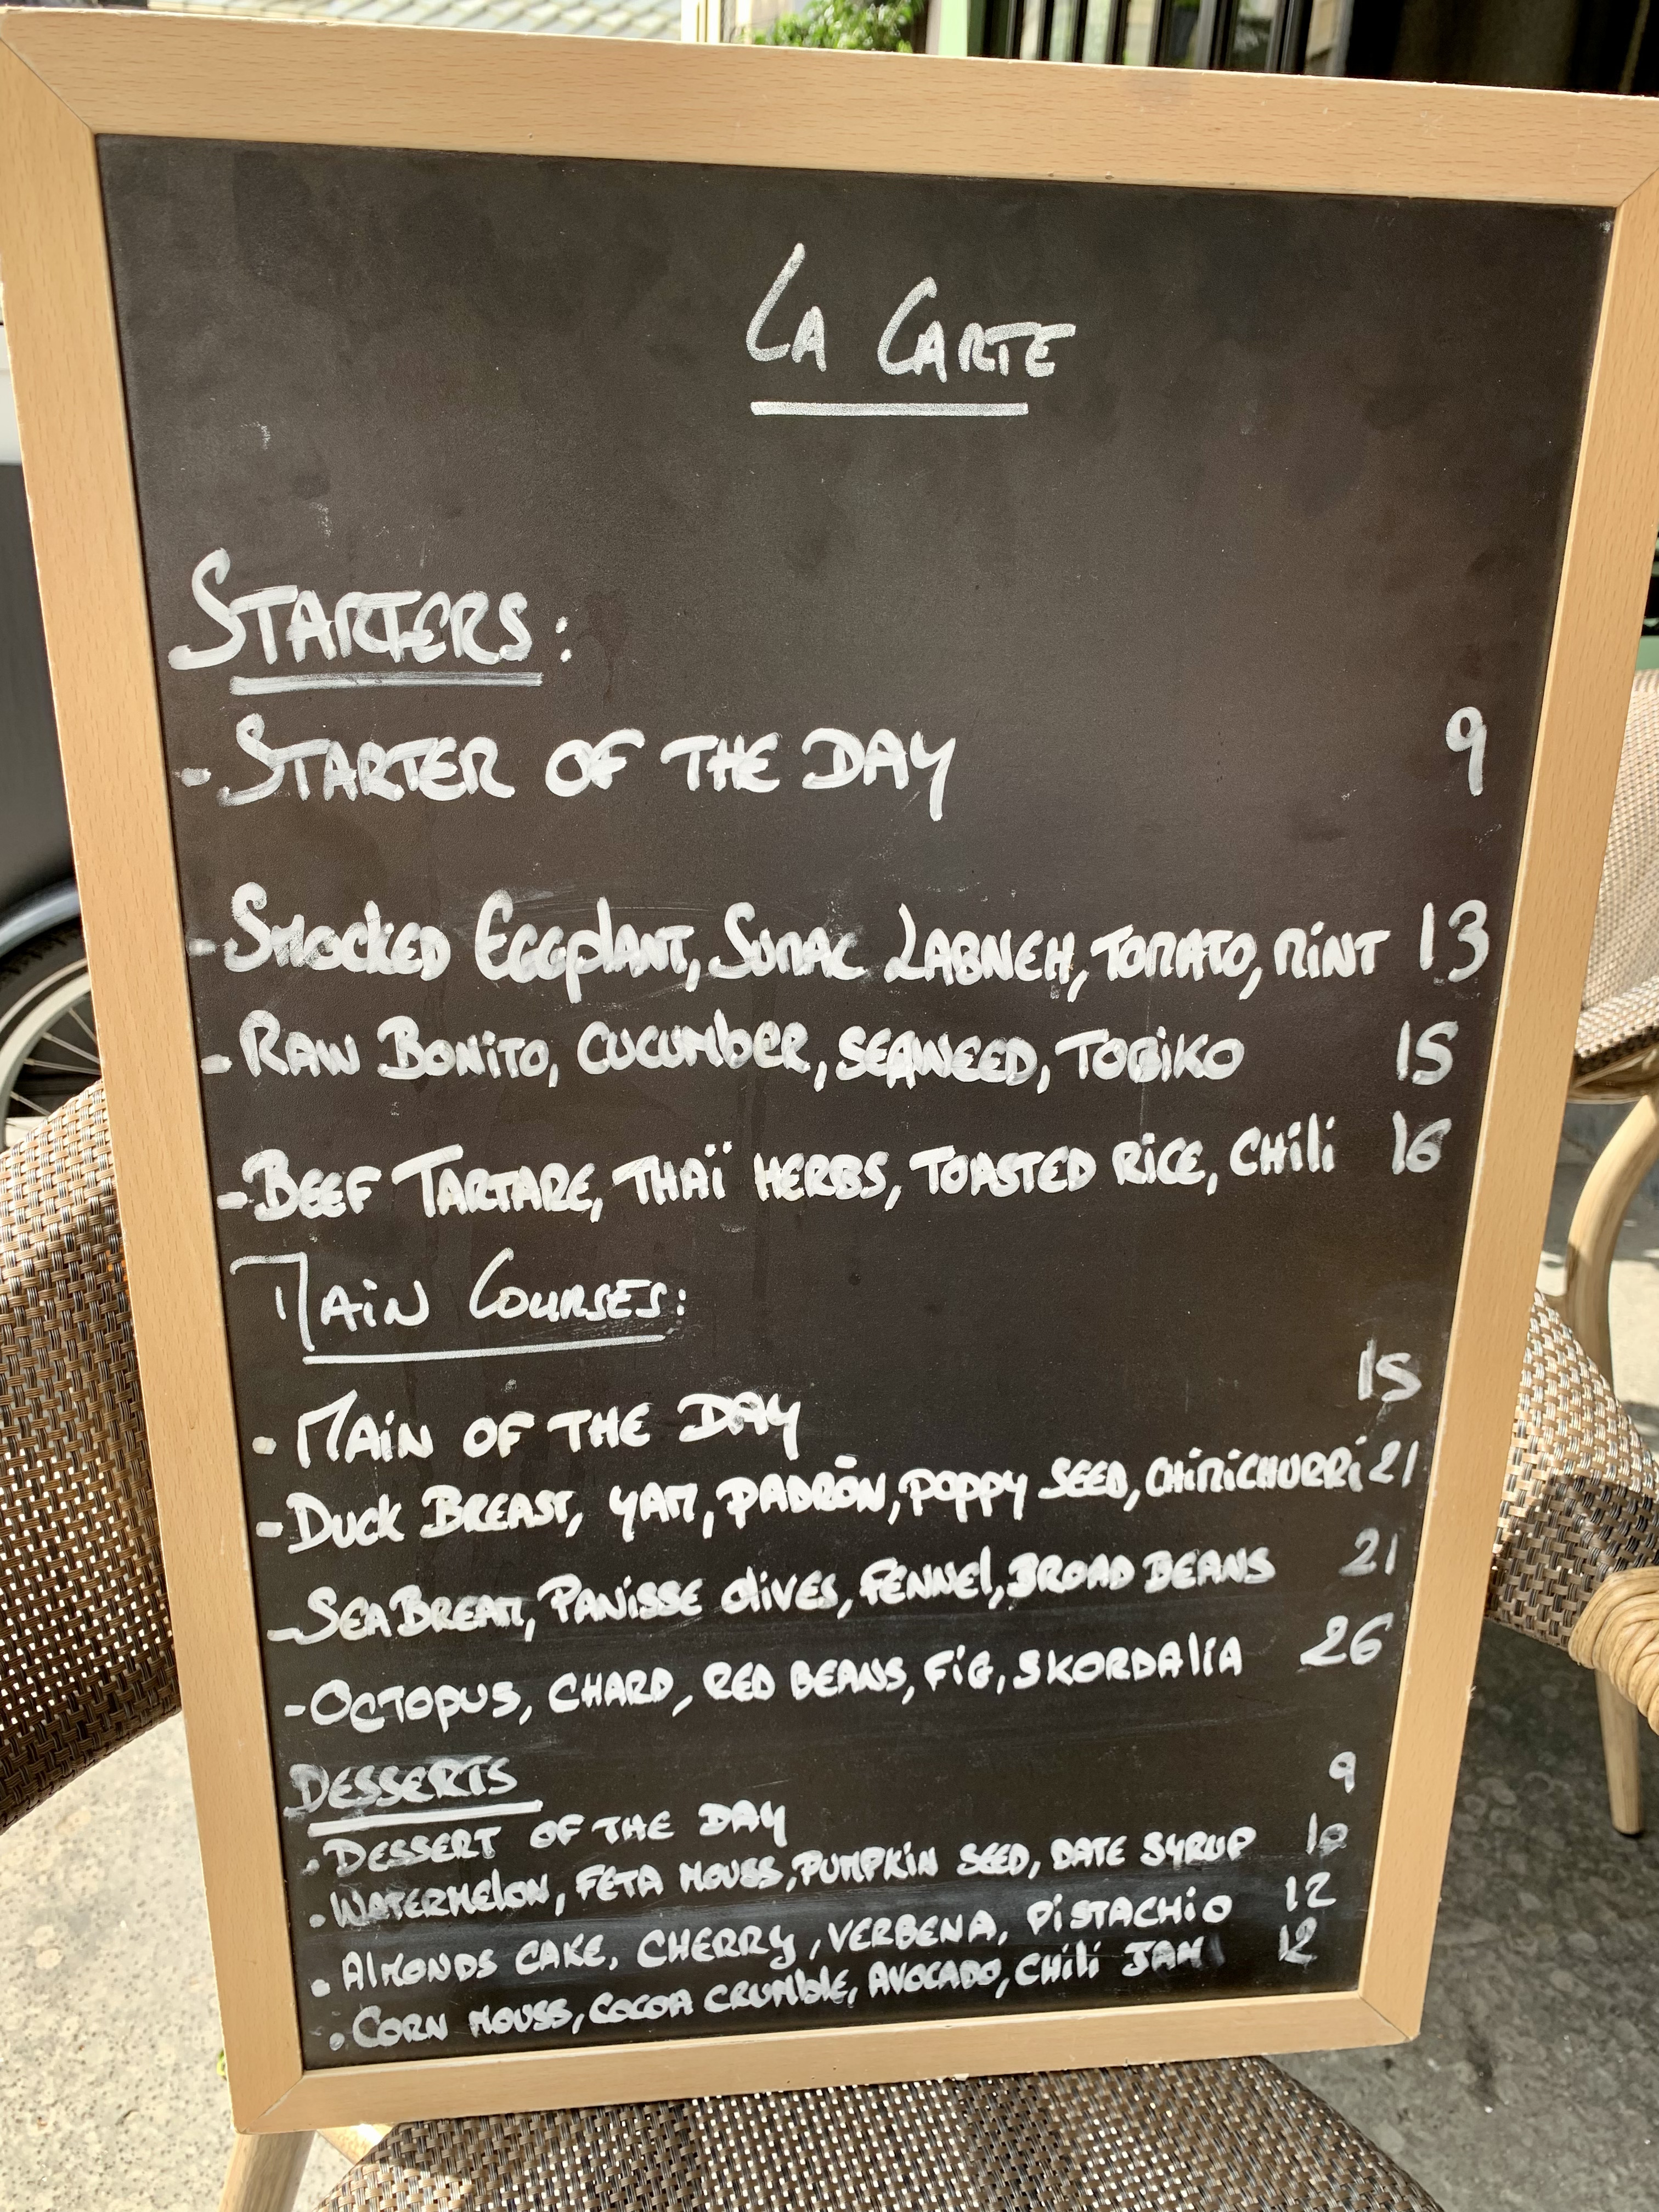 La Carte
Starters:
- Starter of the Day 9
- Smocked Eggplant, Sumac Labneh, Tomato, Mint 13
- Raw Bonito, Cucumber, Seaweed, Tobiko 15
- Beef Tartare, Thaï Herbs, Toasted Rice, Chili 16
Main Courses:
- Main of the Day 15
- Duck Breast, Yam, Padrõn, Poppy Seed, Chimichurri 21
- Sea Bream, Panisse Olives, Fennel, Broad Beans 21
- Octopus, Chard, Red Beans, Fig, Skordalia 26
Desserts
. Dessert of the Day 9
. Watermelon, Feta Mouss, Pumpkin Seed, Date Syrup 10
. Almonds Cake, Cherry, Verbena, Pistachio 12
. Corn Mouss, Cocoa Crumble, Avocado, Chili Jam 12